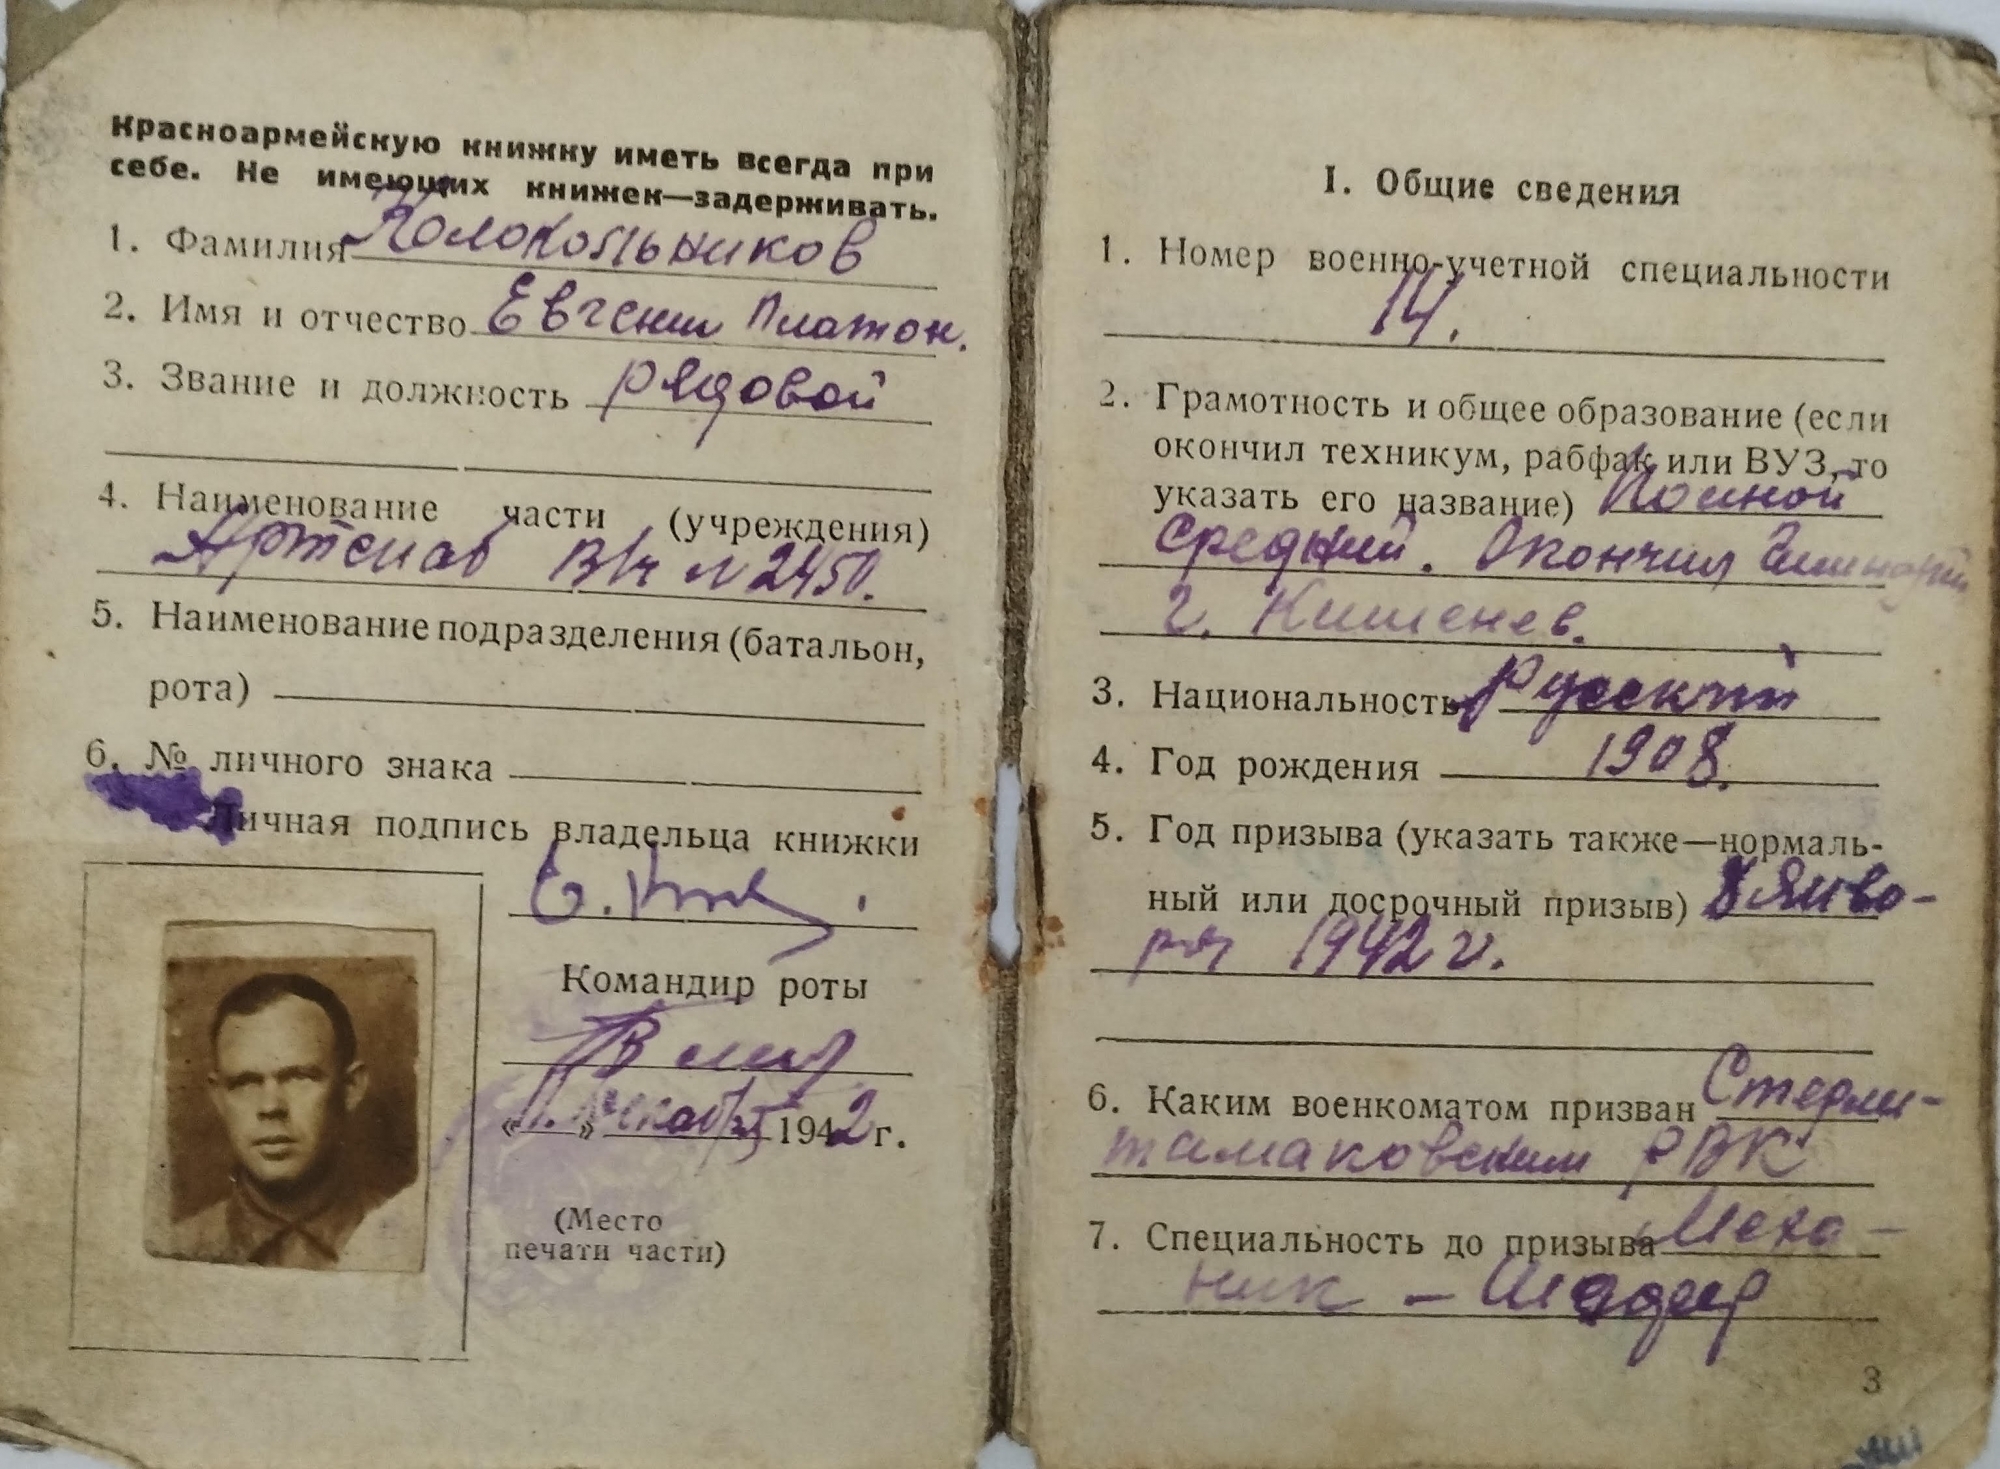 Красноармейскую книжку иметь всегда при
себе. Не имеющих книжек—задерживать.
1. Фамилия Колокольников
2. Имя и отчество Евгений Платон.
3. Звание и должность рядовой
4. Наименование части (учреждения)
Артснаб в/ч № 2450.
5. Наименование подразделения (батальон,
рота)
6. № личного знака
Личная подпись владельца книжки
Командир роты
« » декабря 1942 г.
(Место
печати части)
I. Общие сведения
1. Номер военно-учетной специальности
14.
2. Грамотность и общее образование (если
окончил техникум, рабфак или ВУЗ, то
указать его название)
средний. Окончил
г. Кишенев.
3. Национальность Русский
4. Год рождения 1908.
5. Год призыва (указать также—нормаль-
ный или досрочный призыв) Янва-
ря 1942 г.
6. Каким военкоматом призван Стерли-
тамаковским РВК
7. Специальность до призыва Меха-
ник - Шофер
3